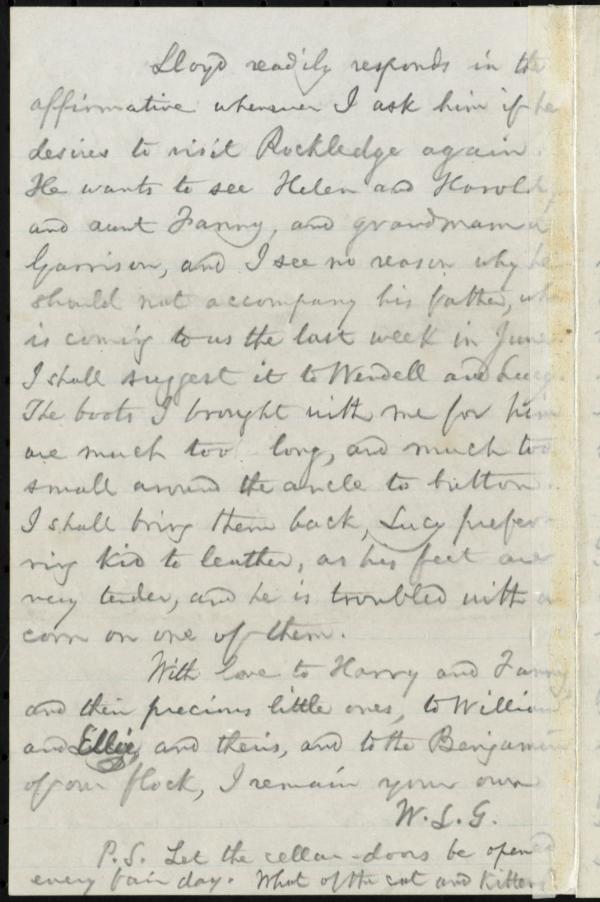 Lloyd readily responds in the
affirmative whenever I ask him if he
desires to visit Rockledge again.
He wants to see Helen and Harold,
and aunt Fanny, and grandmama
Garrison, and I see no reason why he
should not accompany his father, who
is coming to us the last week in June.
I shall suggest it to Wendell and Lucy.
The boots I brought with me for him
are much too long, and much too
small around the ancle to button.
I shall bring them back, Lucy prefer-
ring kid to leather, as his feet are
very tender, and he is troubled with a
corn on one of them.
With love to Harry and Fanny,
and their precious little ones, to William
and Ellie, and theirs, and to the Benjamin
of our flock, I remain your own
W. L. G.
P.S. Let the cellar-doors be opened
every fair day. What of the cat and kittens